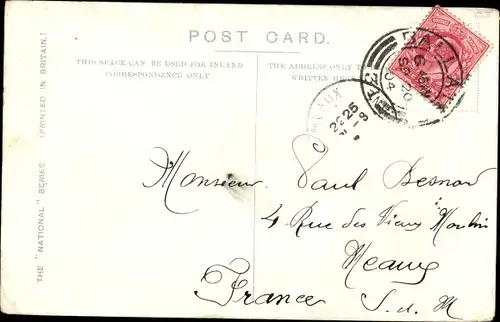 POST CARD.
THIS SPACE CAN BE USED FOR INLAND
CORRESPONDENCE ONLY
THE ADDRESS ONLY TO
WRITTEN HERE
THE "NATIONAL" SERIES
(PRINTED IN BRITAIN.)
Monsieur Paul Besnard
4 Rue des Vieux Moulin
Meaux
France S. d. M